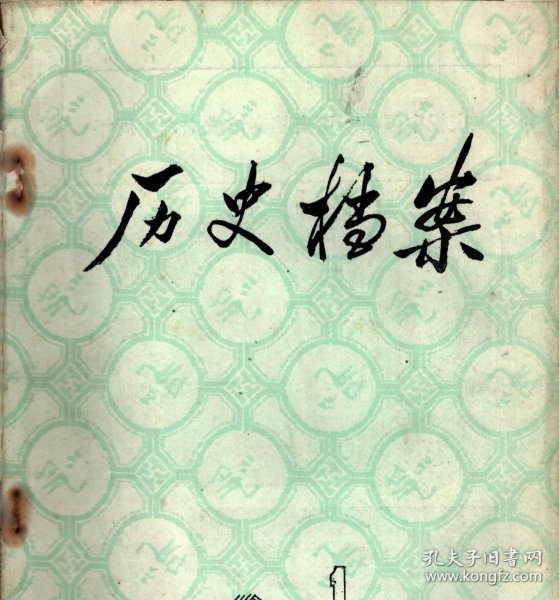 历史档案
1
孔夫子旧书网
www.kongfz.com